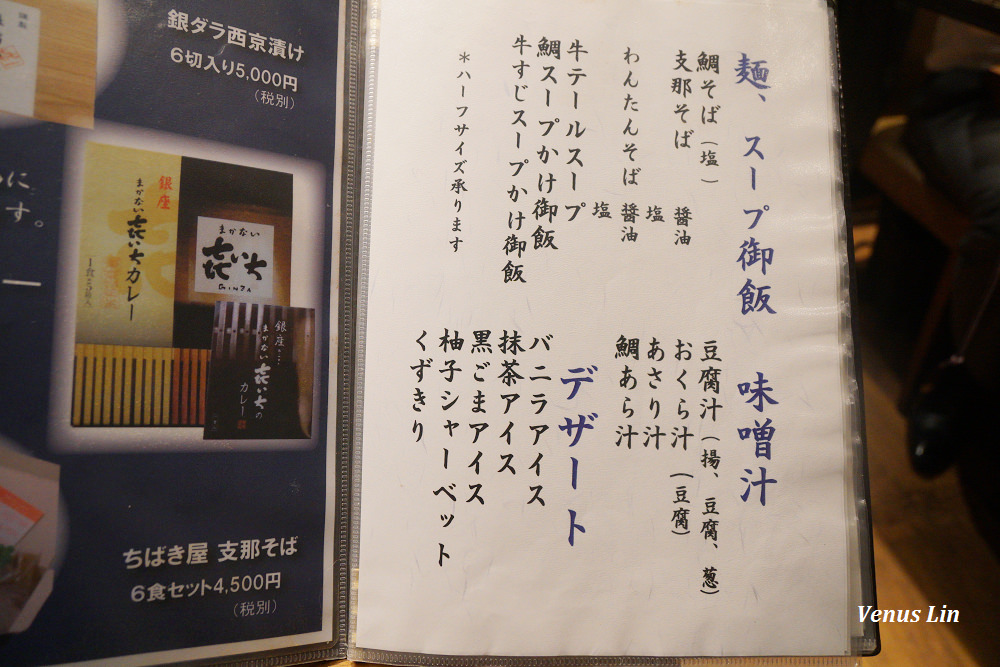 麺、スープ御飯
鯛そば（塩）
支那そば 醤油
塩
わんたんそば 醤油
塩
牛テールスープ
鯛スープかけ御飯
牛すじスープかけ御飯
＊ハーフサイズ承ります
味噌汁
豆腐汁（揚、豆腐、葱）
おくら汁（豆腐）
あさり汁
鯛あら汁
デザート
バニラアイス
抹茶アイス
黒ごまアイス
柚子シャーベット
くずきり
銀ダラ西京漬け
6切入り5,000円
（税別）
に
す。
銀座
まかない
㐂いち
カレー
まかない
㐂いち
GINZA
銀座
まかない
㐂いちの
カレー
ちばき屋 支那そば
6食セット4,500円
（税別）
Venus Lin